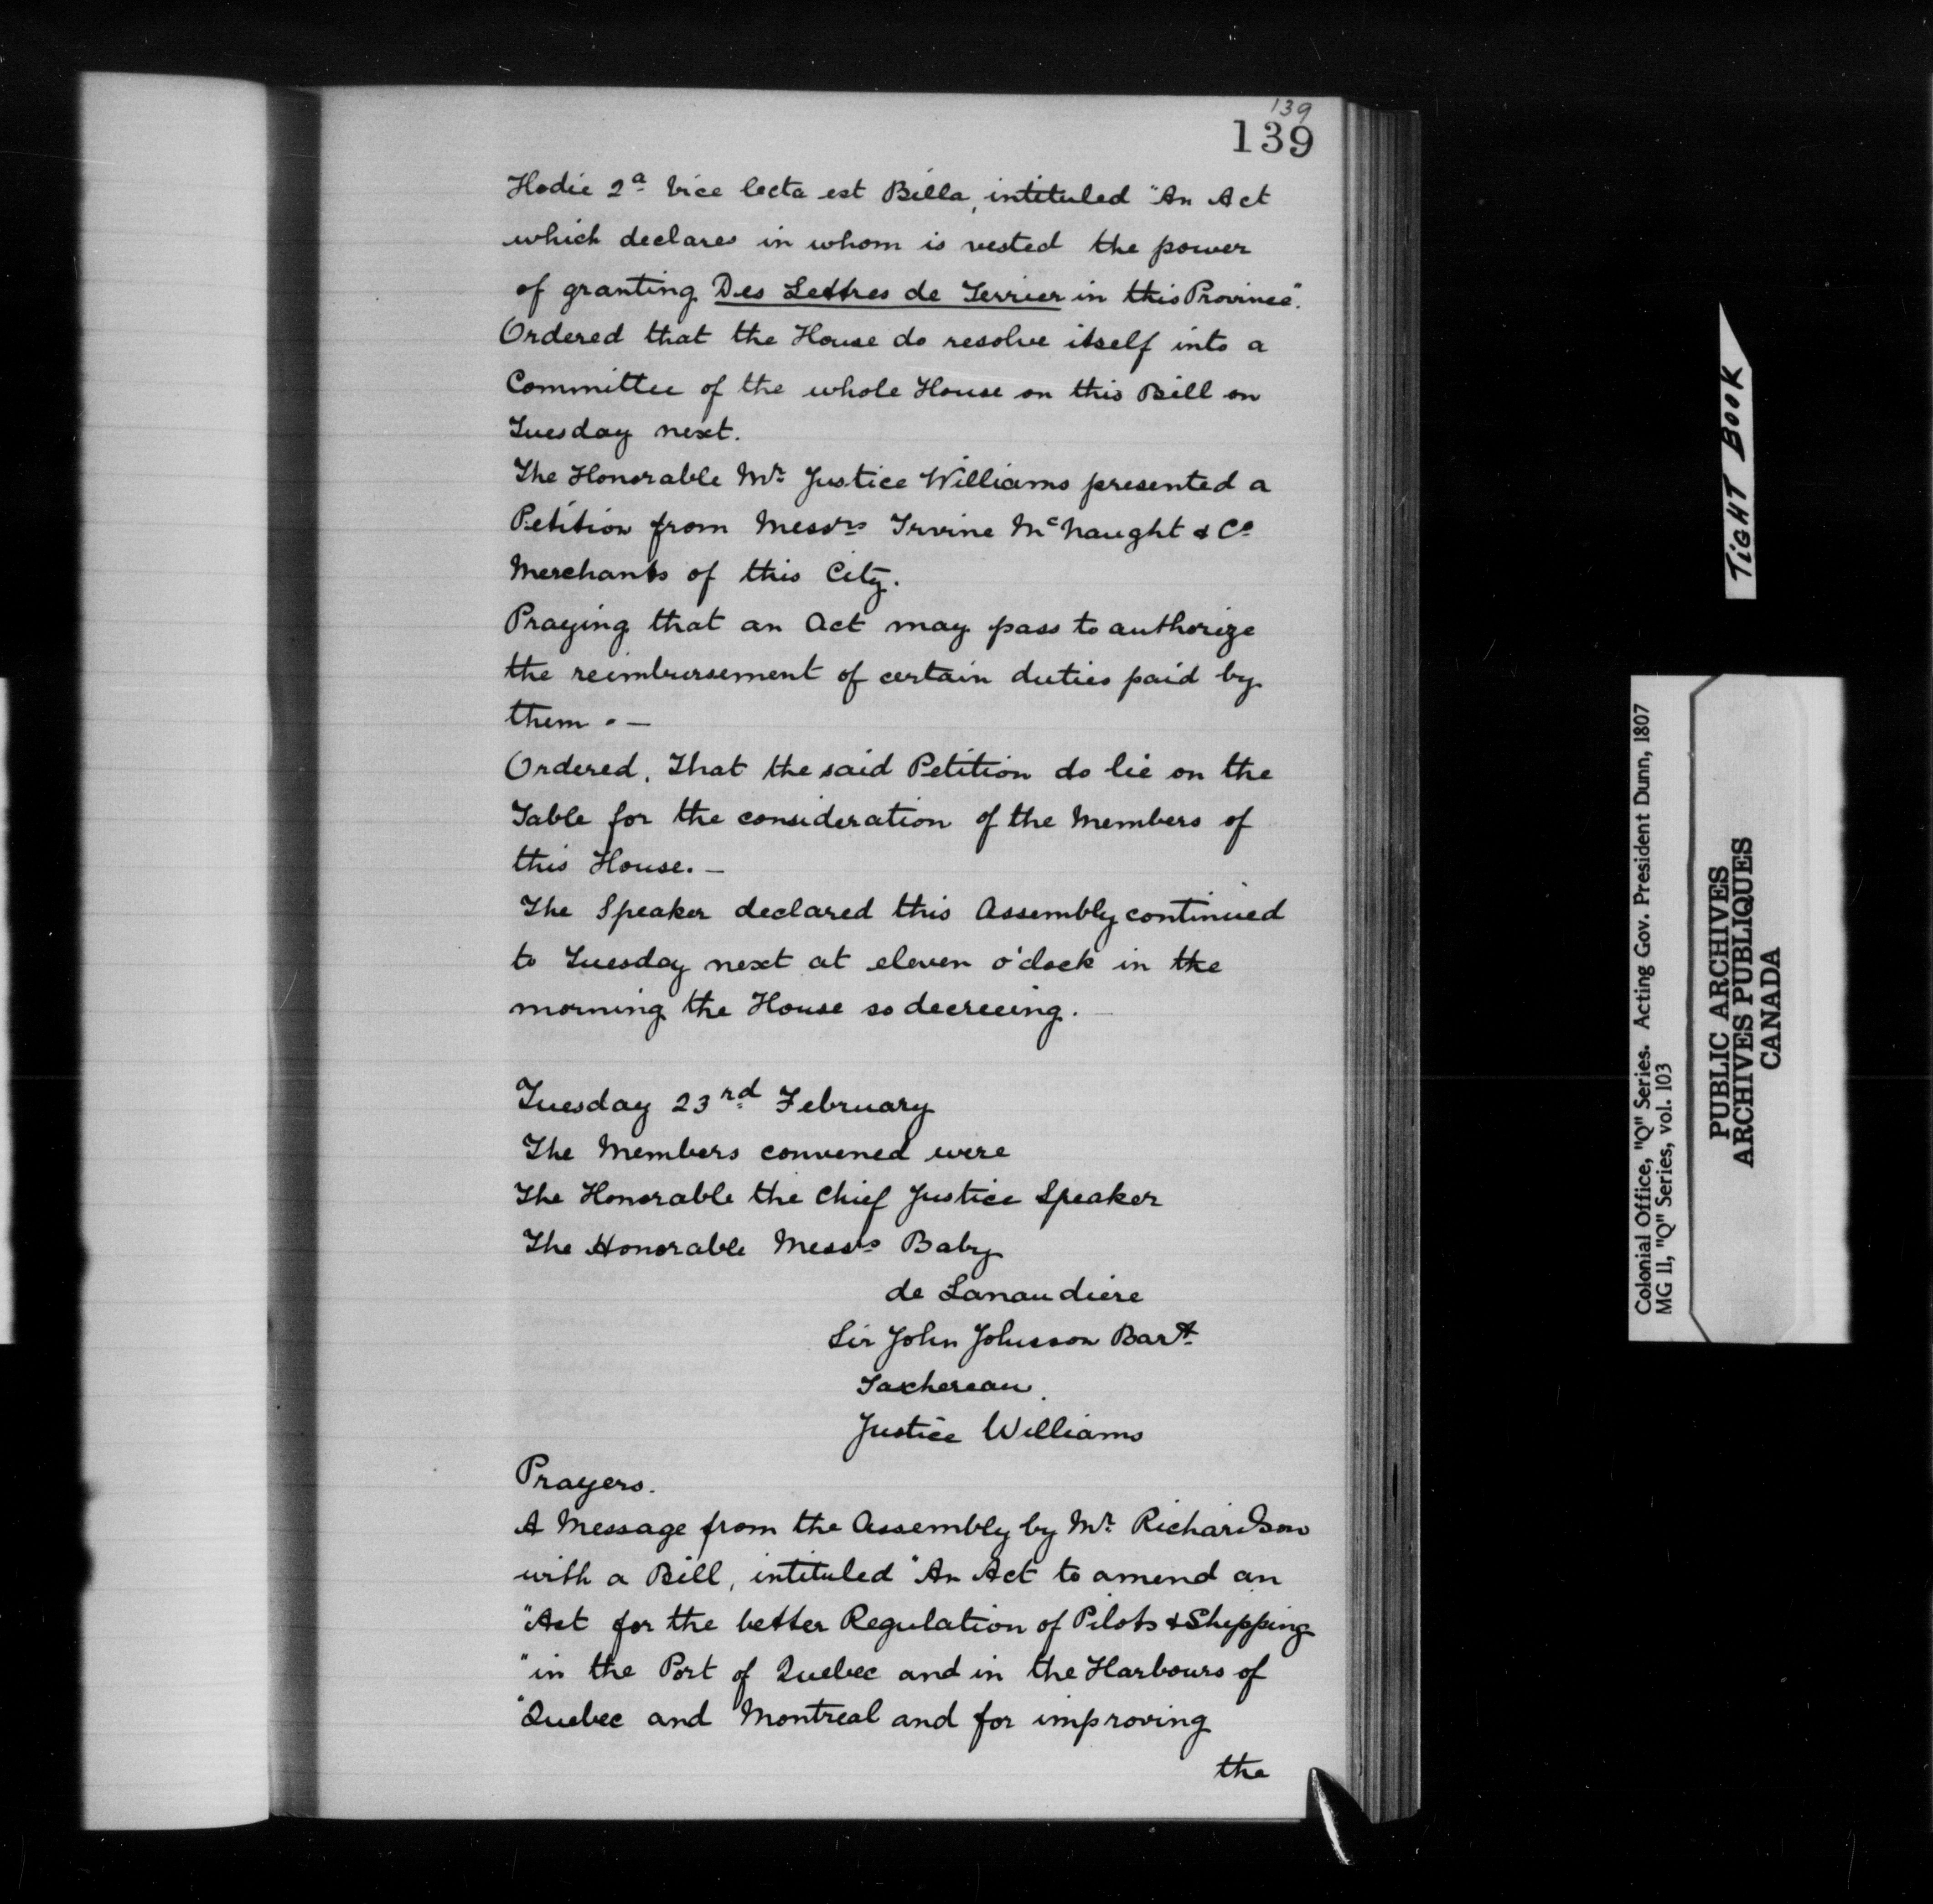 139
139
Hodie 2a Vice lecta est Billa, intituled "An Act
which declares in whom is vested the power
of granting Des Lettres de Terrier in this Province".
Ordered that the House do resolve itself into a
Committee of the whole House on this Bill on
Tuesday next.
The Honorable Mr. Justice Williams presented a
Petition from Messrs Irvine McNaught & Co
Merchants of this City.
Praying that an Act may pass to authorize
the reimbursement of certain duties paid by
them. —
Ordered. That the said Petition do lie on the
Table for the consideration of the Members of
this House. —
The Speaker declared this Assembly continued
to Tuesday next at eleven o'clock in the
morning the House so decreeing. —
Tuesday 23rd February
The Members convened were
The Honorable the Chief Justice Speaker
The Honorable Messrs Baby
de Lanaudiere
Sir John Johnson Bart.
Taschereau.
Justice Williams
Prayers.
A Message from the Assembly by Mr. Richardson
with a Bill, intituled "An Act to amend an
"Act for the better Regulation of Pilots & Shipping
"in the Port of Quebec and in the Harbours of
"Quebec and Montreal and for improving
the
TiGHT BOOK
Colonial Office, "Q" Series. Acting Gov. President Dunn, 1807
MG 11, "Q" Series, vol. 103
PUBLIC ARCHIVES
ARCHIVES PUBLIQUES
CANADA